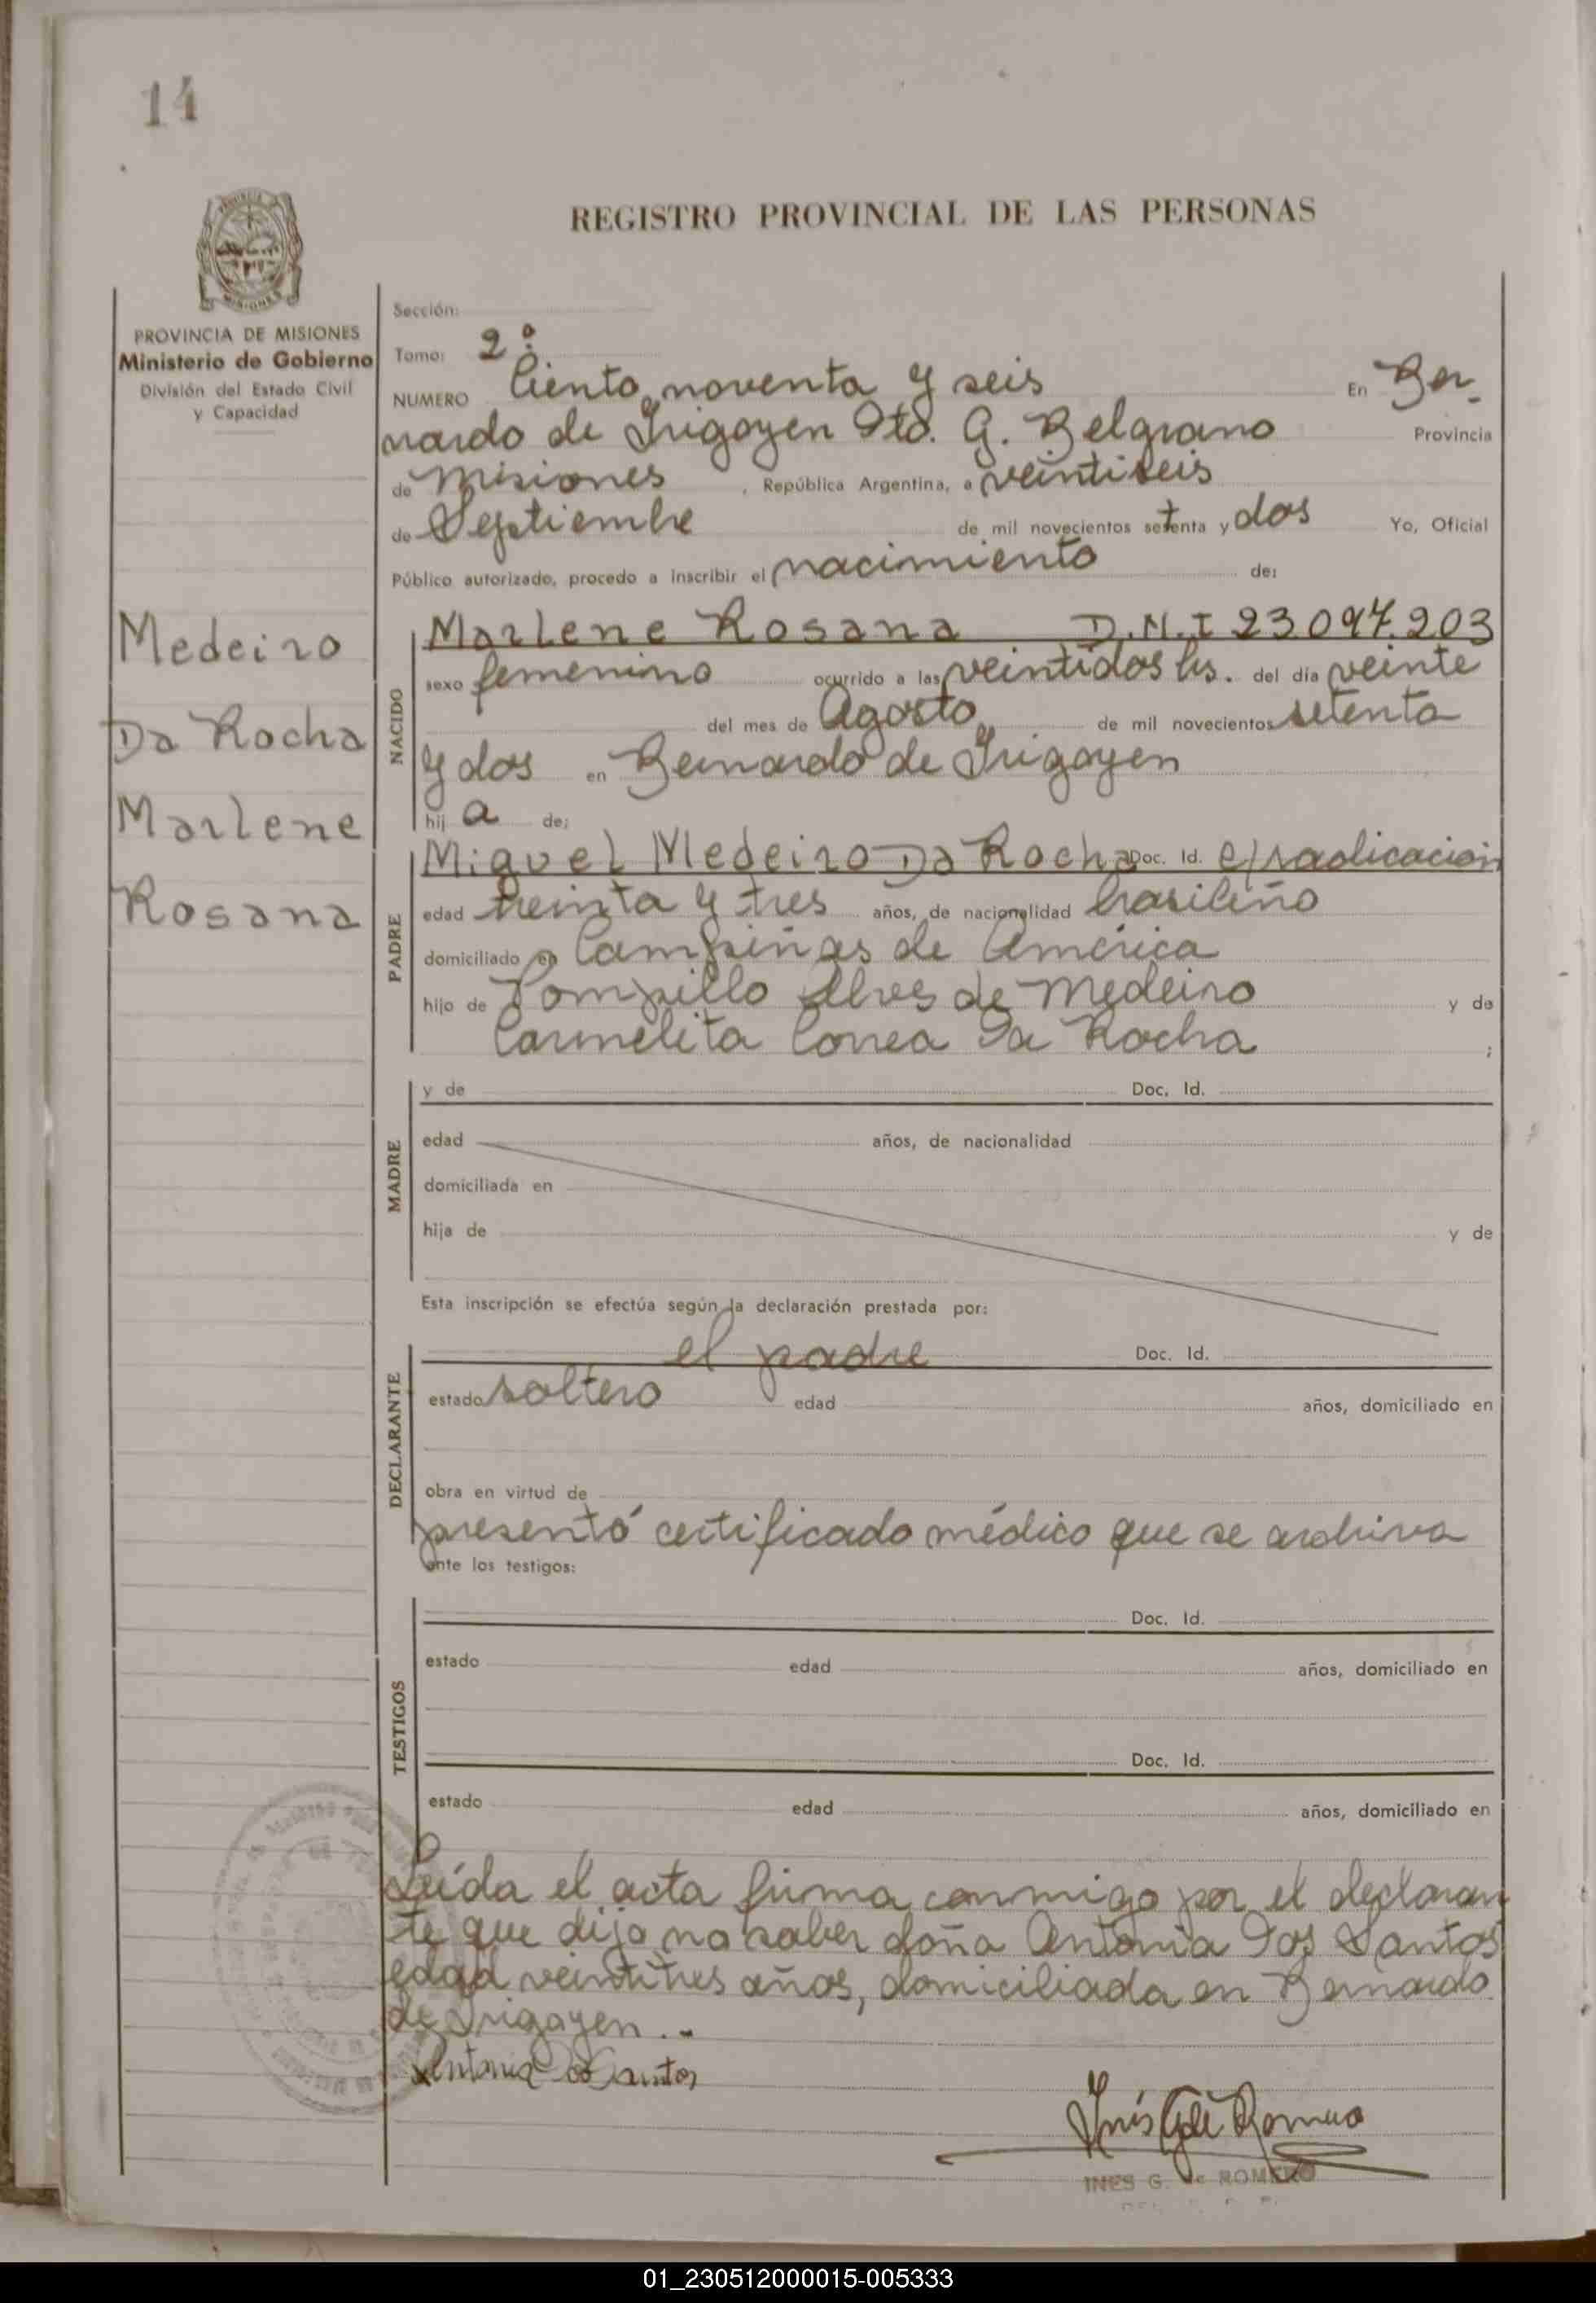 14
REGISTRO PROVINCIAL DE LAS PERSONAS
PROVINCIA DE MISIONES
Ministerio de Gobierno
División del Estado Civil
y Capacidad
Medeiro
Da Rocha
Marlene
Rosana
Sección:
Tomo: 2º
NUMERO Ciento noventa y seis En Ber-
nardo de Irigoyen Dto. G. Belgrano Provincia
de Misiones , República Argentina, a veintiseis
de Septiembre de mil novecientos setenta y dos Yo, Oficial
Público autorizado, procedo a inscribir el nacimiento de:
NACIDO
Marlene Rosana D.N.I 23.097.203
sexo femenino ocurrido a las veintidos hs. del día veinte
del mes de Agosto de mil novecientos setenta
y dos en Bernardo de Irigoyen
hij a de:
PADRE
Miguel Medeiro Da Rocha Doc. Id. e/radicación
edad treinta y tres años, de nacionalidad brasileño
domiciliado en Campiñas de América
hijo de Pompillo Alves de Medeiro y de
Carmelita Correa Da Rocha ;
MADRE
y de Doc. Id.
edad años, de nacionalidad
domiciliada en
hija de y de
Esta inscripción se efectúa según la declaración prestada por:
DECLARANTE
el padre Doc. Id.
estado soltero edad años, domiciliado en
obra en virtud de
presentó certificado médico que se archiva
ante los testigos:
TESTIGOS
Doc. Id.
estado edad años, domiciliado en
Doc. Id.
estado edad años, domiciliado en
Leída el acta firma conmigo por el declaran
te que dijo no saber doña Antonia Dos Santos
edad veintitres años, domiciliada en Bernardo
de Irigoyen.-
Antonia Dos Santos
Inés G de Romero
INES G. de ROMERO
01_230512000015-005333